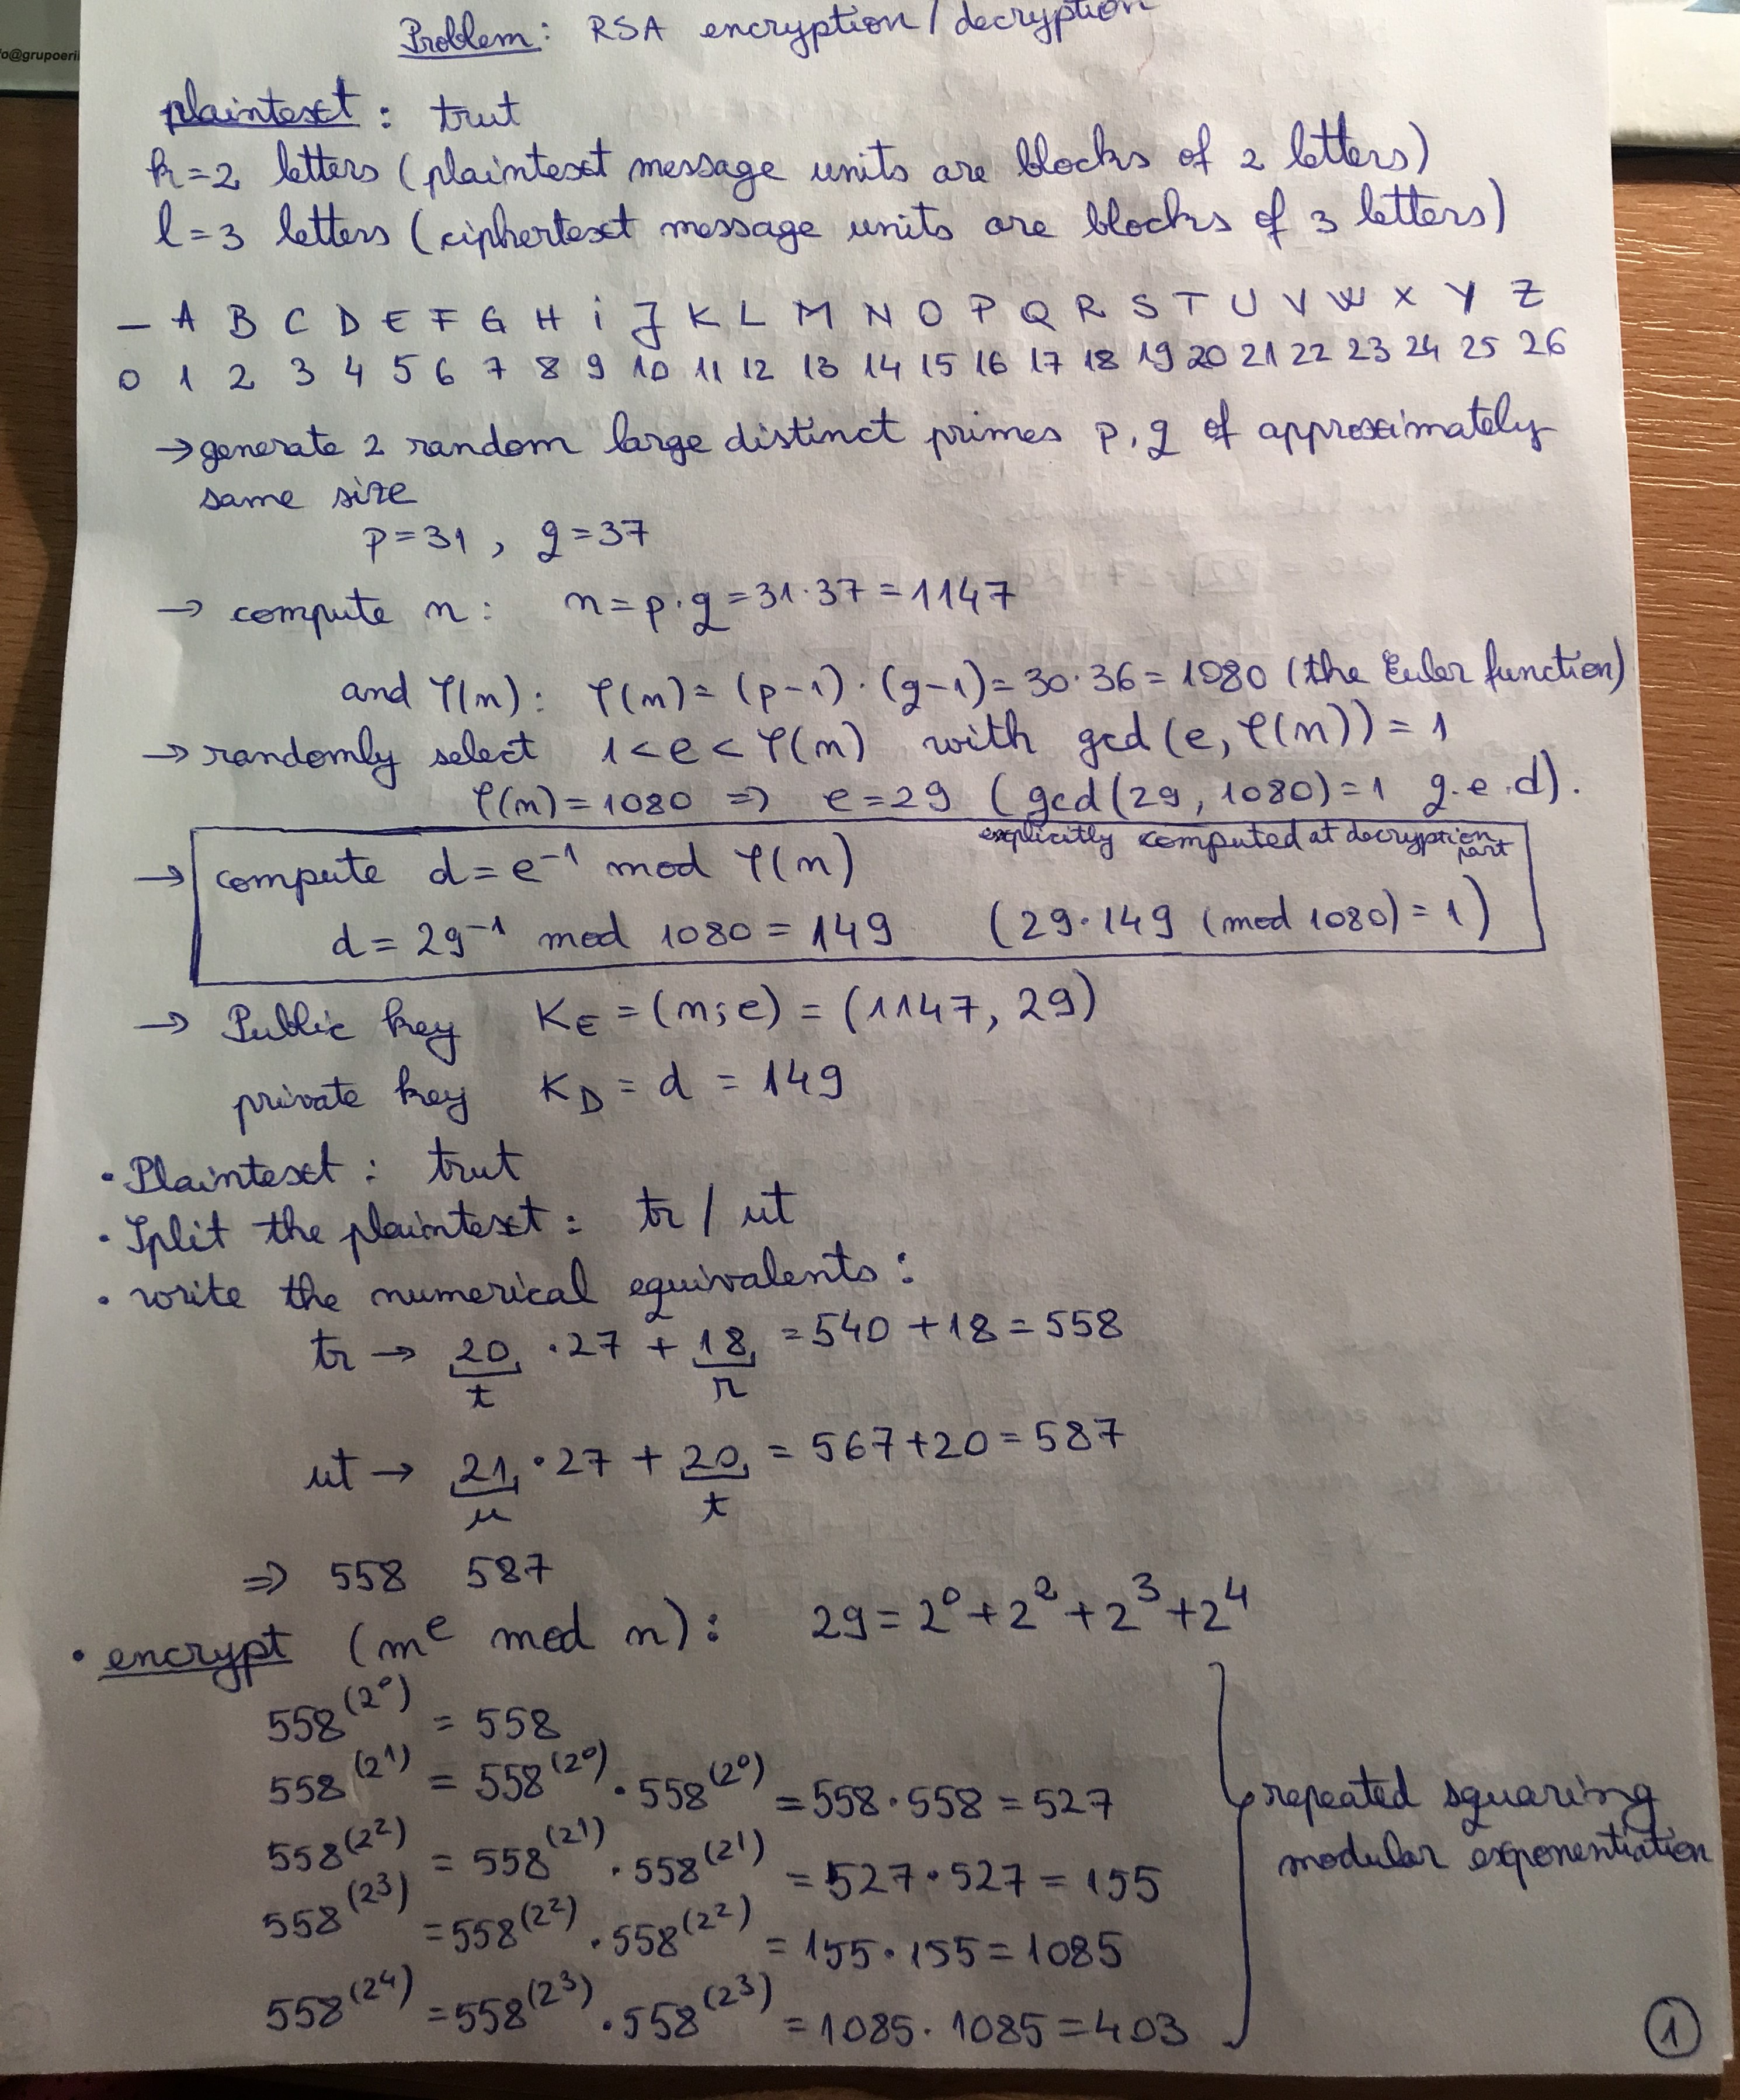 fo@grupoeri
Problem: RSA encryption/decryption
plaintext: trut
k=2 letters (plaintext message units are blocks of 2 letters)
l=3 letters (ciphertext message units are blocks of 3 letters)
_ A B C D E F G H i J K L M N O P Q R S T U V W X Y Z
0 1 2 3 4 5 6 7 8 9 10 11 12 13 14 15 16 17 18 19 20 21 22 23 24 25 26
→ generate 2 random large distinct primes p, q of approximately
same size
p=31, q=37
→ compute n: n=p·q=31·37=1147
and φ(n): φ(n)=(p-1)·(q-1)=30·36=1080 (the Euler function)
→ randomly select 1<e<φ(n) with gcd(e,φ(n))=1
φ(n)=1080 => e=29 (gcd(29,1080)=1 q.e.d).
explicitly computed at decryption part
→ compute d=e⁻¹ mod φ(n)
d=29⁻¹ mod 1080=149 (29·149 (mod 1080)=1)
→ Public key K_E=(n;e)=(1147, 29)
private key K_D=d=149
• Plaintext: trut
• Split the plaintext: tr/ut
• write the numerical equivalents:
tr → 20·27+18=540+18=558
t r
ut → 21·27+20=567+20=587
u t
=> 558 587
• encrypt (m^e mod n): 29=2⁰+2²+2³+2⁴
558^(2⁰)=558
558^(2¹)=558^(2⁰)·558^(2⁰)=558·558=527
558^(2²)=558^(2¹)·558^(2¹)=527·527=155
558^(2³)=558^(2²)·558^(2²)=155·155=1085
558^(2⁴)=558^(2³)·558^(2³)=1085·1085=403
repeated squaring
modular exponentiation
1